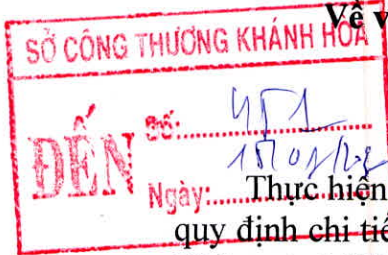 Về v
SỞ CÔNG THƯƠNG KHÁNH HÒA
ĐẾN
Số:
Ngày:
Thực hiện
quy định chi tiế